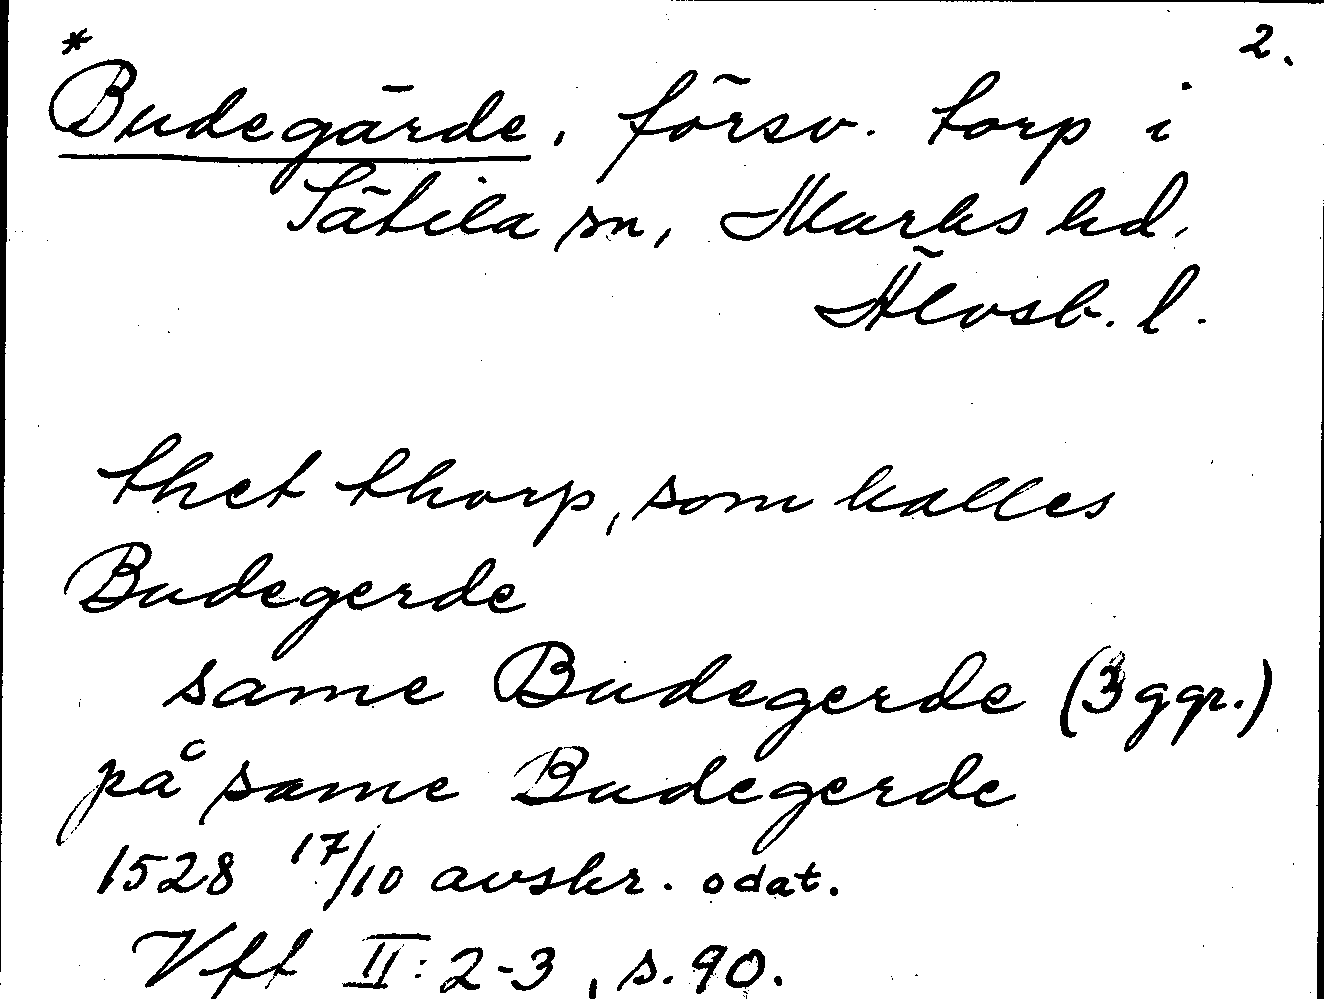 * 2.
Budegärde, försv. torp i
Sätila sn, Marks hd.
Älvsb. l.
thet thorp, som kalles
Budegerde
same Budegerde (3 ggr.)
på same Budegerde
1528 17/10 avskr. odat.
Vft II:2-3, s. 90.